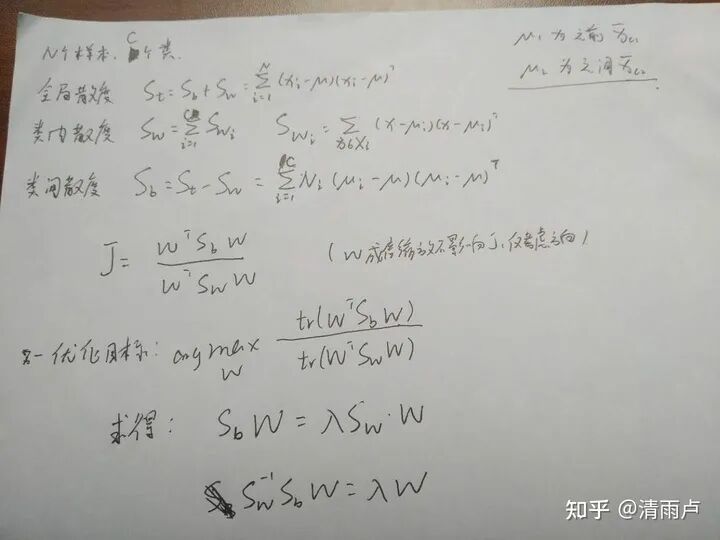 N个样本. C个类.
μ₁ 为之前 x̄c₁
μ₂ 为之间 x̄c₂
全局散度 St = Sb + Sw = Σ_{i=1}^{N} (xi-μ)(xi-μ)ᵀ
类内散度 Sw = Σ_{i=1}^{C} Swi Swi = Σ_{x∈Xi} (x-μi)(x-μi)ᵀ
类间散度 Sb = St - Sw = Σ_{i=1}^{C} Ni (μi-μ)(μi-μ)ᵀ
J = WᵀSbW / WᵀSwW (W成倍缩放不影响J,仅考虑方向)
优化目标: arg max_W tr(WᵀSbW) / tr(WᵀSwW)
求得: SbW = λSw·W
Sw⁻¹SbW = λW
知乎 @清雨卢